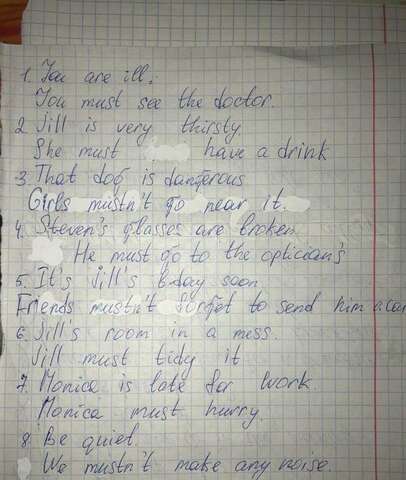 1. You are ill.
You must see the doctor.
2. Jill is very thirsty.
She must have a drink
3. That dog is dangerous
Girls mustn't go near it.
4. Steven's glasses are broken.
He must go to the optician's
5. It's Jill's b-day soon.
Friends mustn't forget to send him a car
6. Jill's room in a mess.
Jill must tidy it
7. Monica is late for work.
Monica must hurry.
8. Be quiet.
We mustn't make any noise.